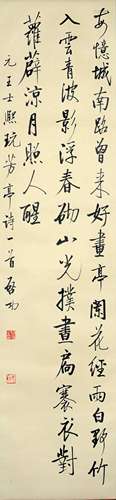 每憶城南路曾来好畫亭闌花經雨白野竹
入雲青波影浮春砌山光撲畫扃褰衣對
蘿薜涼月照人醒
元王士熙玩芳亭诗一首 啟功